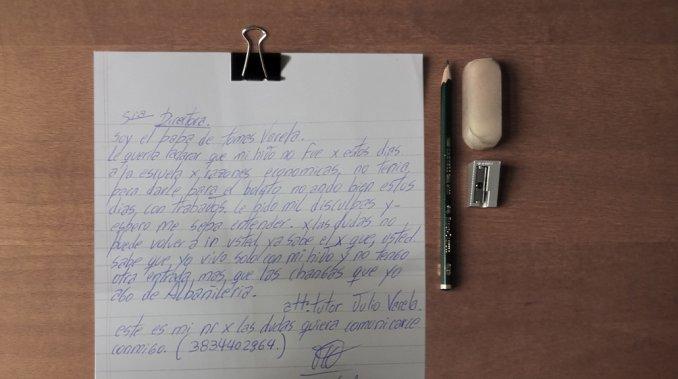 Sra Directora.
Soy el papá de tomas Varela.
Le queria Aclarar que mi hijo no Fue x estos dias
a la escuela x, razones economicas, no tenia
para darle para el boleto no ando bien estos
dias, con trabajos. le pido mil disculpas y-
espero me sepa entender. x las dudas no
puede volver a ir usted, ya sabe el x que, usted
sabe que, yo vivo solo con mi hijo y no tengo
otra entrada mas, que las changas que yo
ago de Albañileria.
att: tutor Julio Varela.
este es mi nr x las dudas quiera comunicarce
conmigo. (3834402964.)